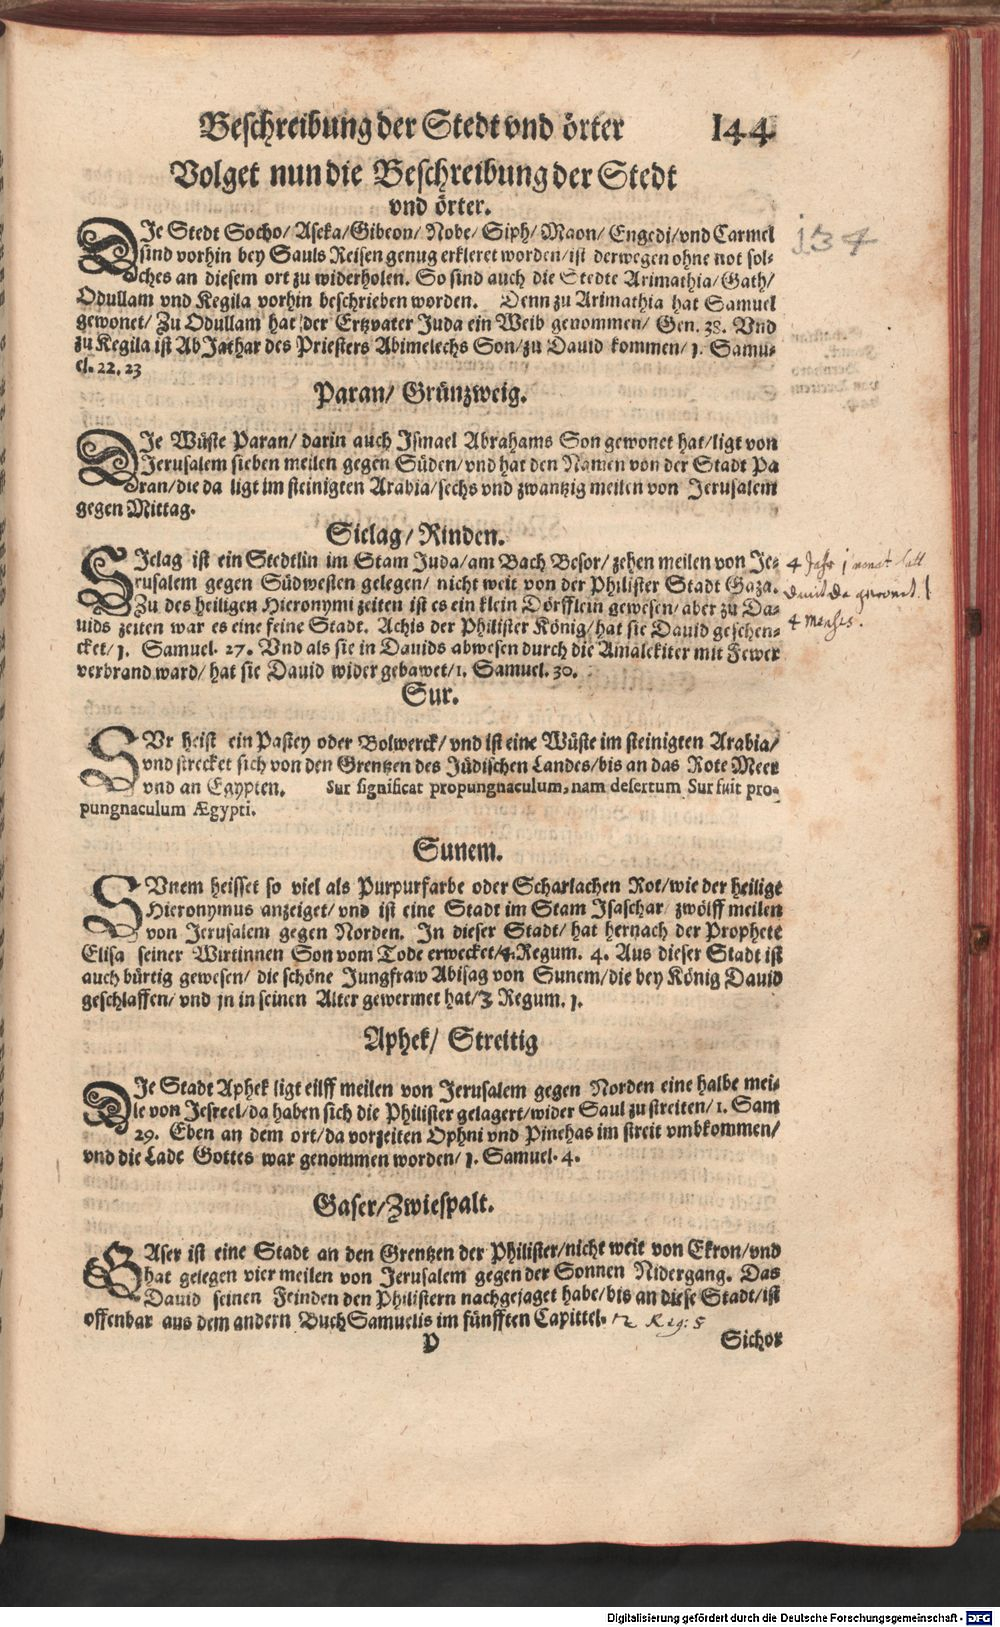 Beschreibung der Stedt vnd örter 144
Volget nun die Beschreibung der Stedt
vnd örter.
134
DIe Stedt Socho/ Aseka/Gibeon/ Nobe/ Siph/ Maon/ Engedi/vnd Carmel
sind vorhin bey Sauls Reisen genug erkleret worden/ist derwegen ohne not sol-
ches an diesem ort zu widerholen. So sind auch die Stedte Arimathia/Gath/
Odullam vnd Kegila vorhin beschrieben worden. Denn zu Arimathia hat Samuel
gewonet/ Zu Odullam hat der Ertzvater Juda ein Weib genommen/ Gen. 38. Vnd
zu Kegila ist AbJathar des Priesters Abimelechs Son/zu Dauid kommen/1. Samu-
el. 22. 23
Paran/ Grünzweig.
DIe Wüste Paran/ darin auch Ismael Abrahams Son gewonet hat/ligt von
Jerusalem sieben meilen gegen Süden/vnd hat den Namen von der Stadt Pa
ran/die da ligt im steinigten Arabia/sechs vnd zwantzig meilen von Jerusalem
gegen Mittag.
Siclag/ Rinden.
SIclag ist ein Stedtlin im Stam Juda/am Bach Besor/ zehen meilen von Je-
rusalem gegen Südwesten gelegen/ nicht weit von der Philister Stadt Gaza.
Zu des heiligen Hieronymi zeiten ist es ein klein Dörfflein gewesen/ aber zu Da-
uids zeiten war es eine feine Stadt. Achis der Philister König/hat sie Dauid geschen-
cket/1. Samuel. 27. Vnd als sie in Dauids abwesen durch die Amalekiter mit Fewer
verbrand ward/ hat sie Dauid wider gebawet/1. Samuel. 30.
4 Jahr
4 menses.
Sur.
SVr heist ein Pastey oder Bolwerck/ vnd ist eine Wüste im steinigten Arabia/
vnd strecket sich von den Grentzen des Jüdischen Landes/bis an das Rote Meer
vnd an Egypten. Sur significat propungnaculum, nam desertum Sur fuit pro-
pungnaculum Ægypti.
Sunem.
SVnem heisset so viel als Purpurfarbe oder Scharlachen Rot/wie der heilige
Hieronymus anzeiget/ vnd ist eine Stadt im Stam Isaschar/ zwölff meilen
von Jerusalem gegen Norden. In dieser Stadt/ hat hernach der Prophete
Elisa seiner Wirtinnen Son vom Tode erwecket/4. Regum. 4. Aus dieser Stadt ist
auch bürtig gewesen/ die schöne Jungfraw Abisag von Sunem/die bey König Dauid
geschlaffen/ vnd jn in seinen Alter gewermet hat/3 Regum. 1.
Aphek/ Streitig
DIe Stadt Aphek ligt eilff meilen von Jerusalem gegen Norden eine halbe mei-
le von Jesreel/da haben sich die Philister gelagert/wider Saul zu streiten/1. Sam
29. Eben an dem ort/da vorzeiten Ophni vnd Pinehas im streit vmbkommen/
vnd die Lade Gottes war genommen worden/ 1. Samuel. 4.
Gaser/Zwiespalt.
GAser ist eine Stadt an den Grentzen der Philister/nicht weit von Ekron/vnd
hat gelegen vier meilen von Jerusalem gegen der Sonnen Nidergang. Das
Dauid seinen Feinden den Philistern nachgejaget habe/bis an diese Stadt/ist
offenbar aus dem andern Buch Samuelis im fünfften Capittel. 2 Reg: 5
P Sichor
Digitalisierung gefördert durch die Deutsche Forschungsgemeinschaft - DFG